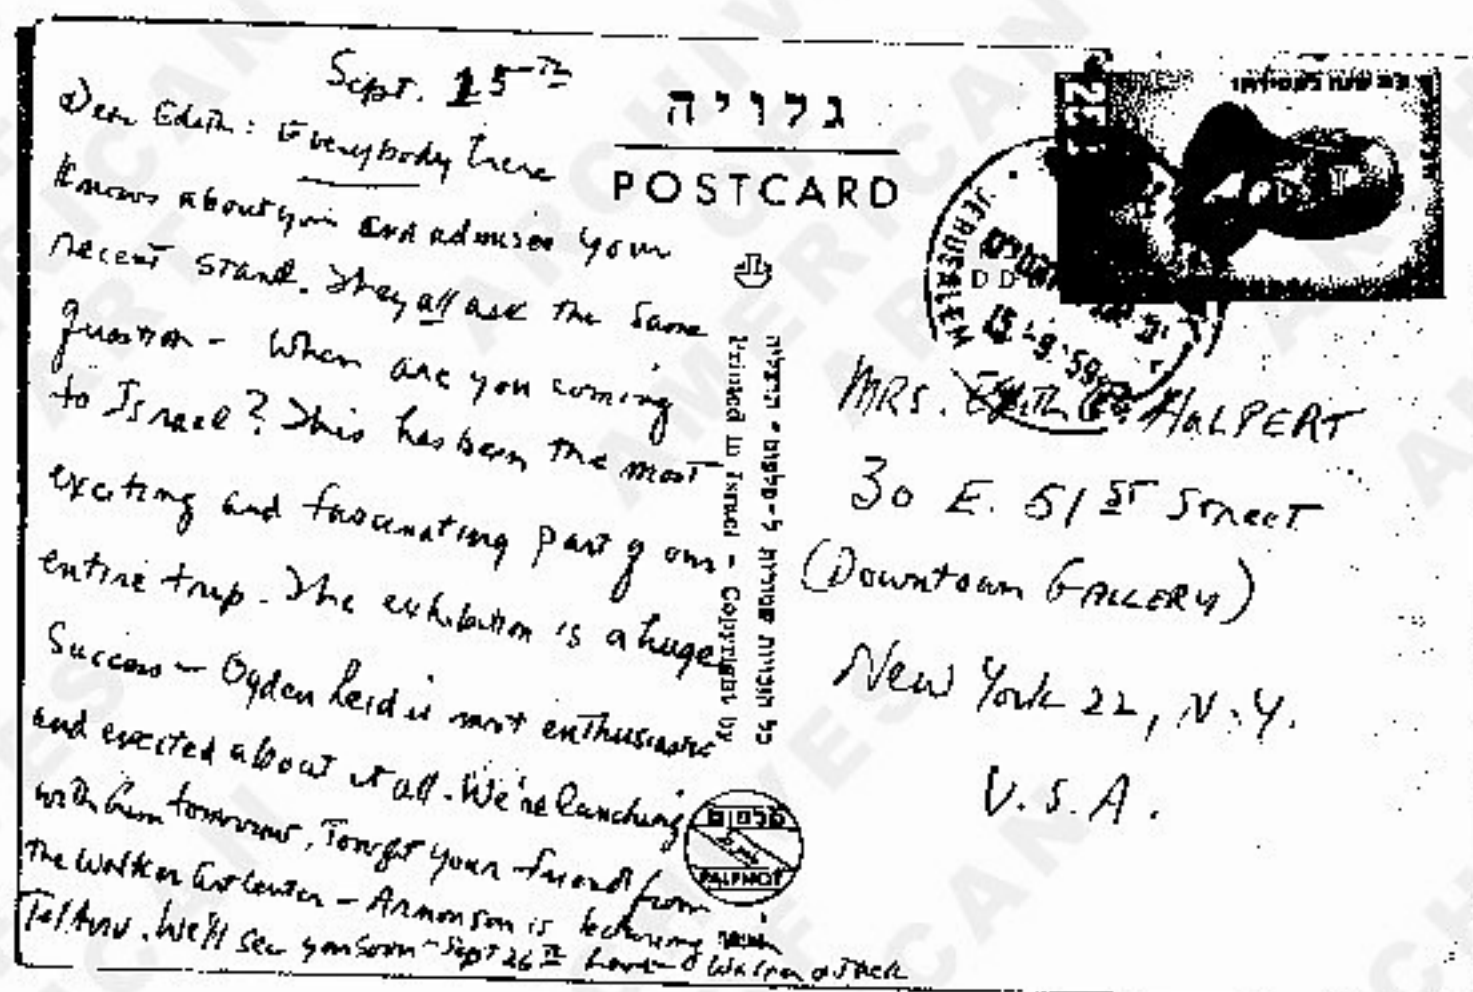 Sept. 15TH
Dear Edith: Everybody here
knows about you and admires your
recent stand. They all ask the same
question - When are you coming
to Israel? This has been the most
exciting and fascinating part of our
entire trip. The exhibition is a huge
success - Ogden Reid is most enthusiastic
and excited about it all. We're lunching
with him tomorrow. Tonight your friend from
the Walker Art Center - Armonson is lecturing in
Tel Aviv. We'll see you soon - Sept 26TH Love - & Jack
גלויה
POSTCARD
כל הזכויות שמורות ל-פלפוט
Printed in Israel • Copyright by
פלפוט
PALPHOT
JERUSALEM
ירושלים
15-9-59
MRS. EDITH G. HALPERT
30 E. 51ST Street
(Downtown GALLERY)
New York 22, N.Y.
U.S.A.